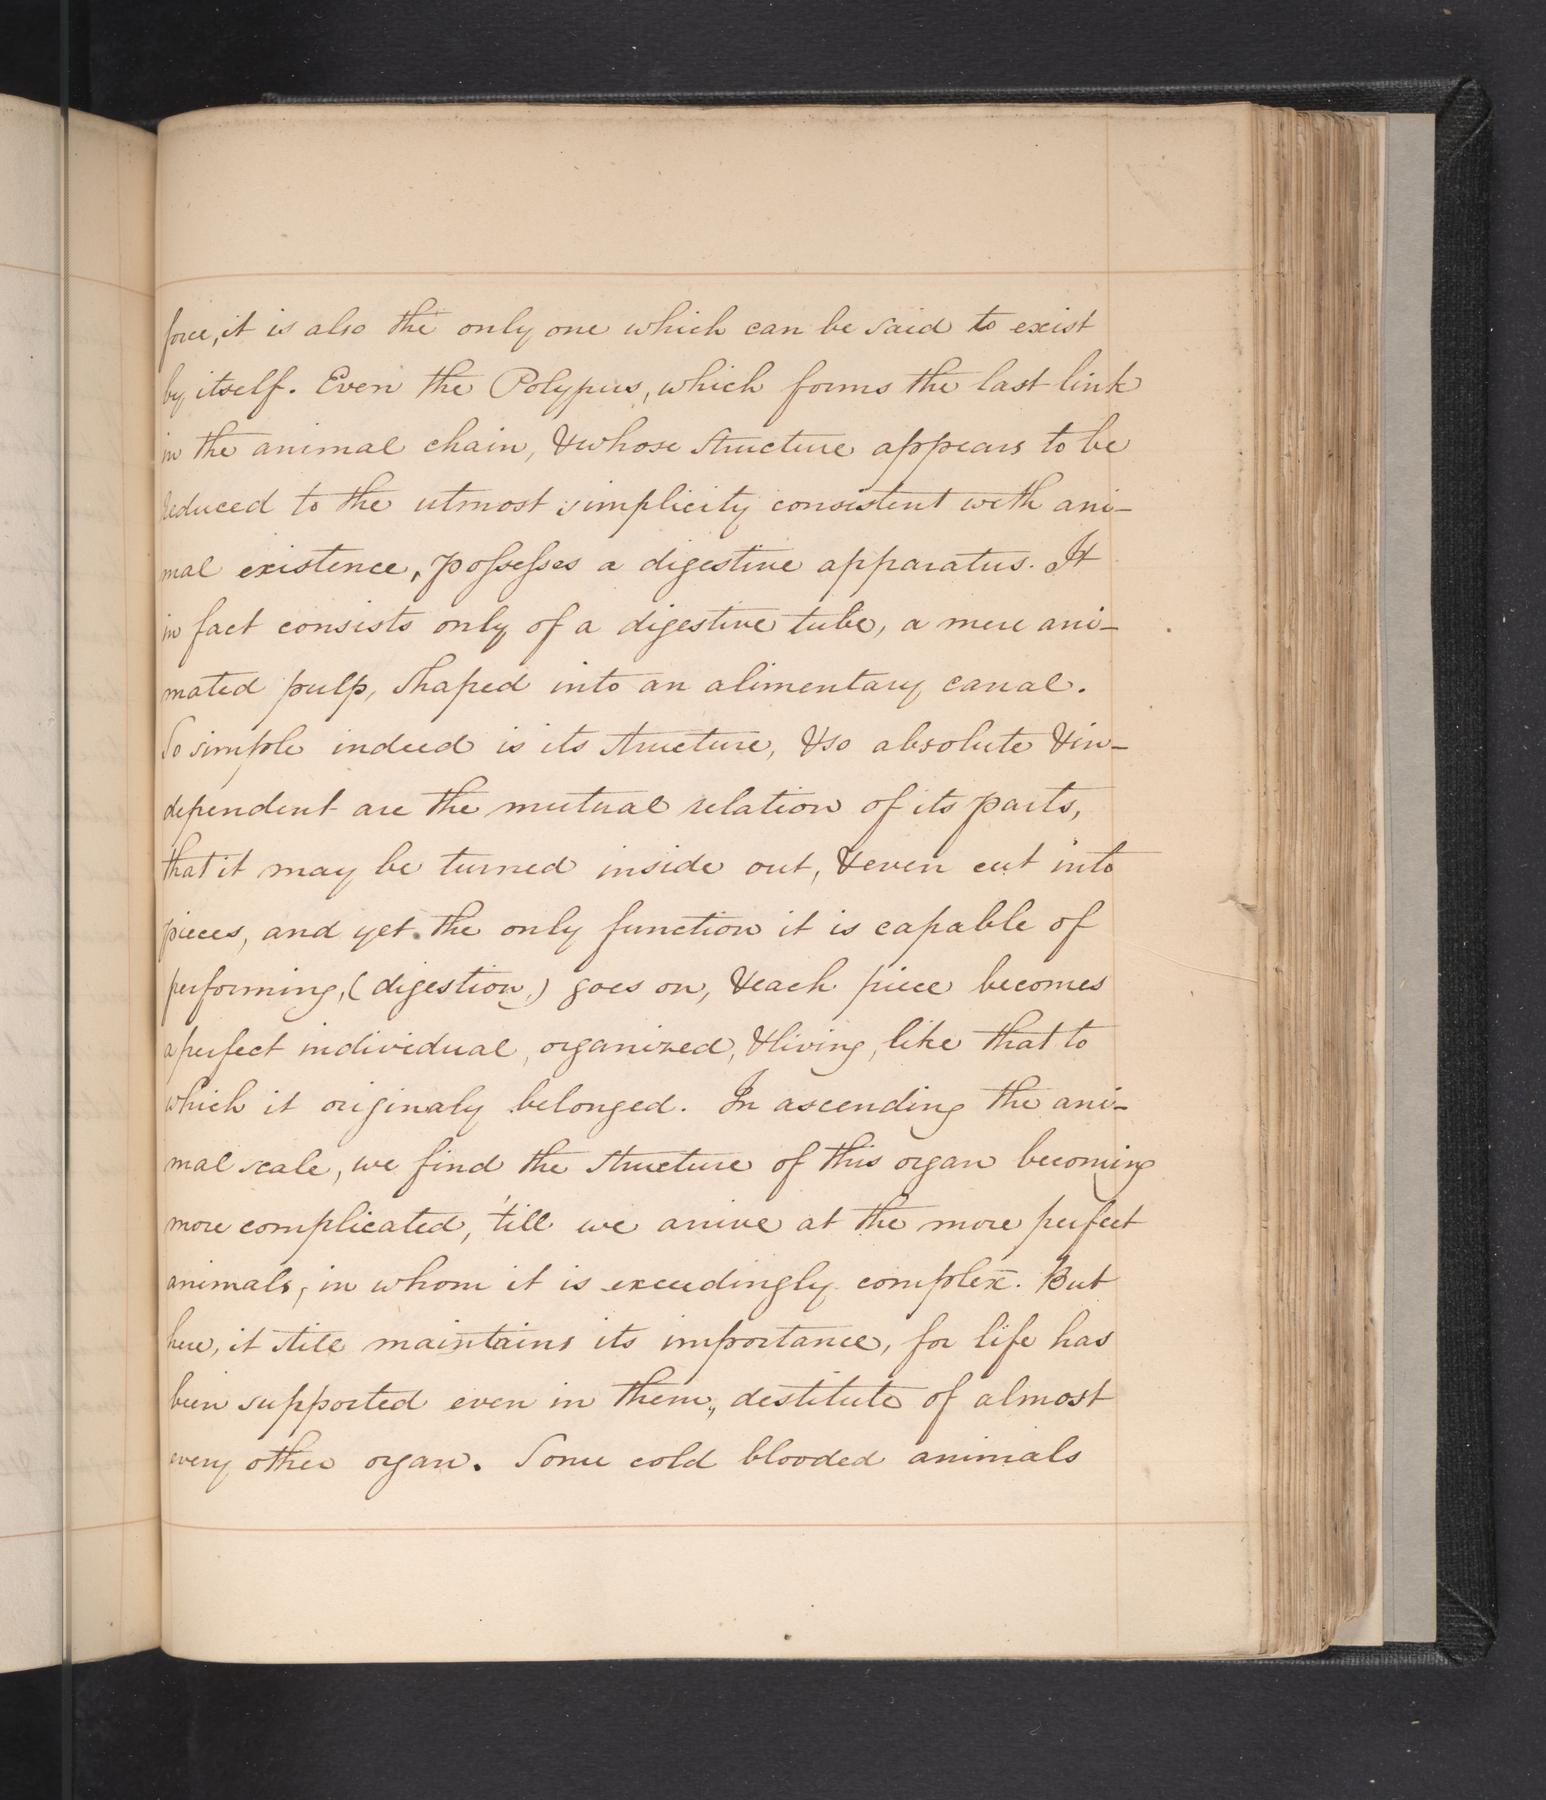 force, it is also the only one which can be said to exist
by itself. Even the Polypus, which forms the last link
in the animal chain, & whose structure appears to be
reduced to the utmost simplicity consistent with ani-
mal existence, possesses a digestive apparatus. It
in fact consists only of a digestive tube, a mere ani-
mated pulp, shaped into an alimentary canal.
So simple indeed is its structure, & so absolute & in-
dependent are the mutual relation of its parts,
that it may be turned inside out, & even cut into
pieces, and yet the only function it is capable of
performing, (digestion,) goes on, & each piece becomes
a perfect individual, organized, & living, like that to
which it originaly belonged. In ascending the ani-
mal scale, we find the structure of this organ becoming
more complicated, 'till we arrive at the more perfect
animals, in whom it is exceedingly complex. But
here, it still maintains its importance, for life has
been supported even in them, destitute of almost
every other organ. Some cold blooded animals